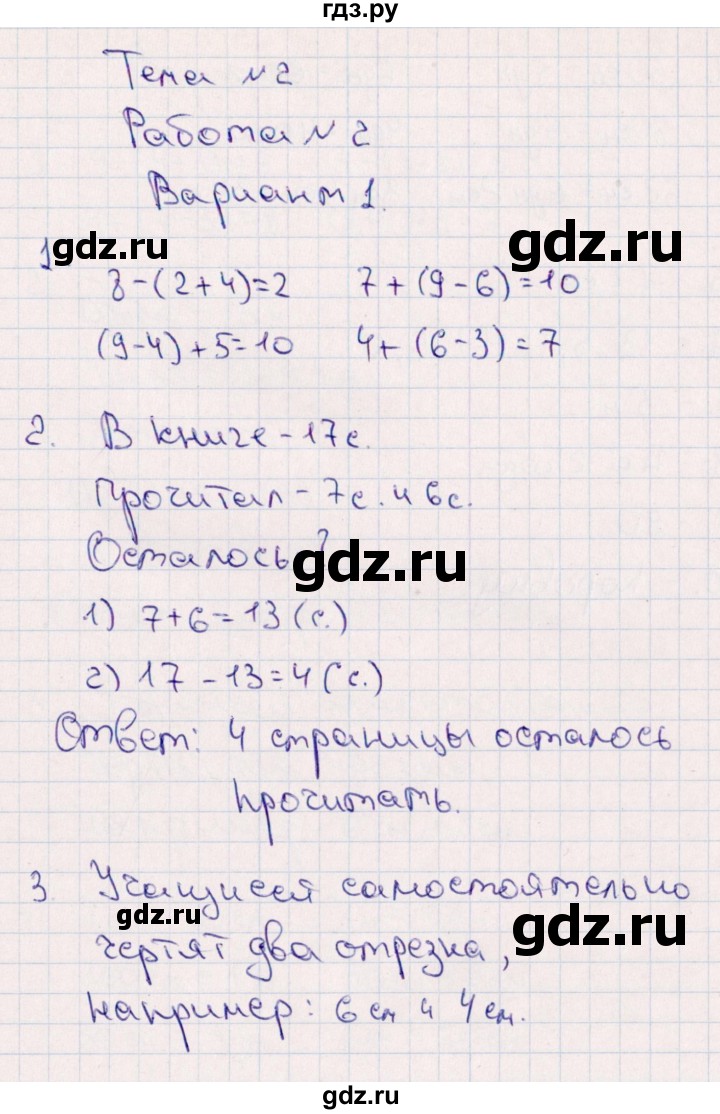 гдз.ру
Тема №2
Работа №2
Вариант 1.
1. gdz.ru
gdz.ru
8-(2+4)=2 7+(9-6)=10
(9-4)+5=10 4+(6-3)=7
2. В книге - 17с.
Прочитал - 7с. и 6с.
Осталось ?
gdz.ru
1) 7+6=13 (с.)
2) 17-13=4 (с.)
Ответ: 4 страницы осталось
прочитать.
3. Учащиеся самостоятельно
gdz.ru
gdz.ru
чертят два отрезка,
например: 6 см и 4 см.
gdz.ru